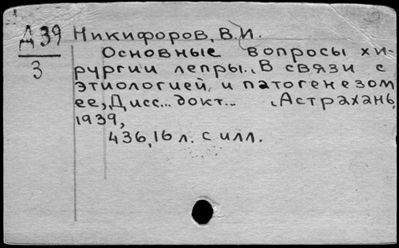 Д 39
3
Никифоров, В.И.
Основные вопросы хи-
рургии лепры. В связи с
этиологией и патогенезом
ее, Дисс... докт... Астрахань,
1939,
436,16 л. с илл.